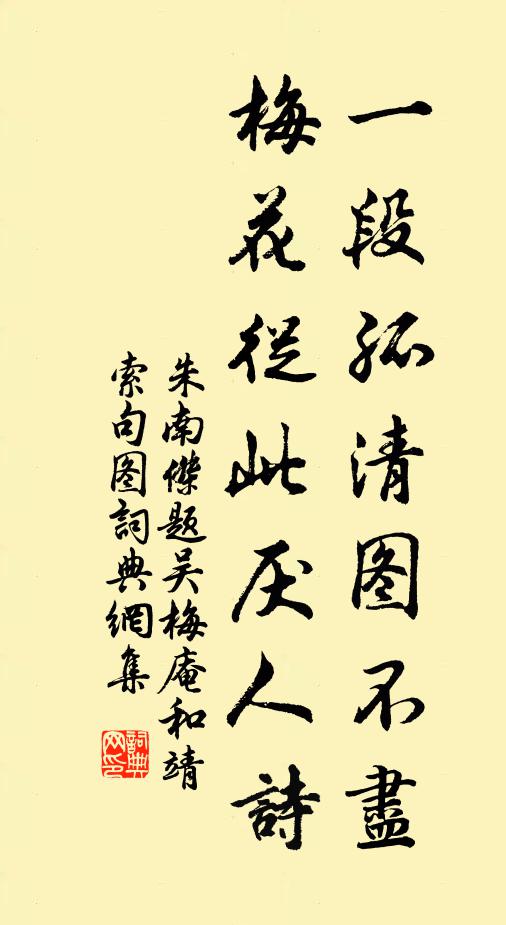 一段孤清图不盡
梅花從此厌人詩
朱南傑题吴梅庵和靖
索句图詞典網集
詞典网印